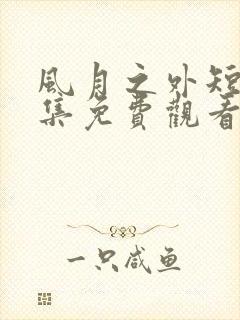 風月之外短
集免費觀看
一只咸鱼